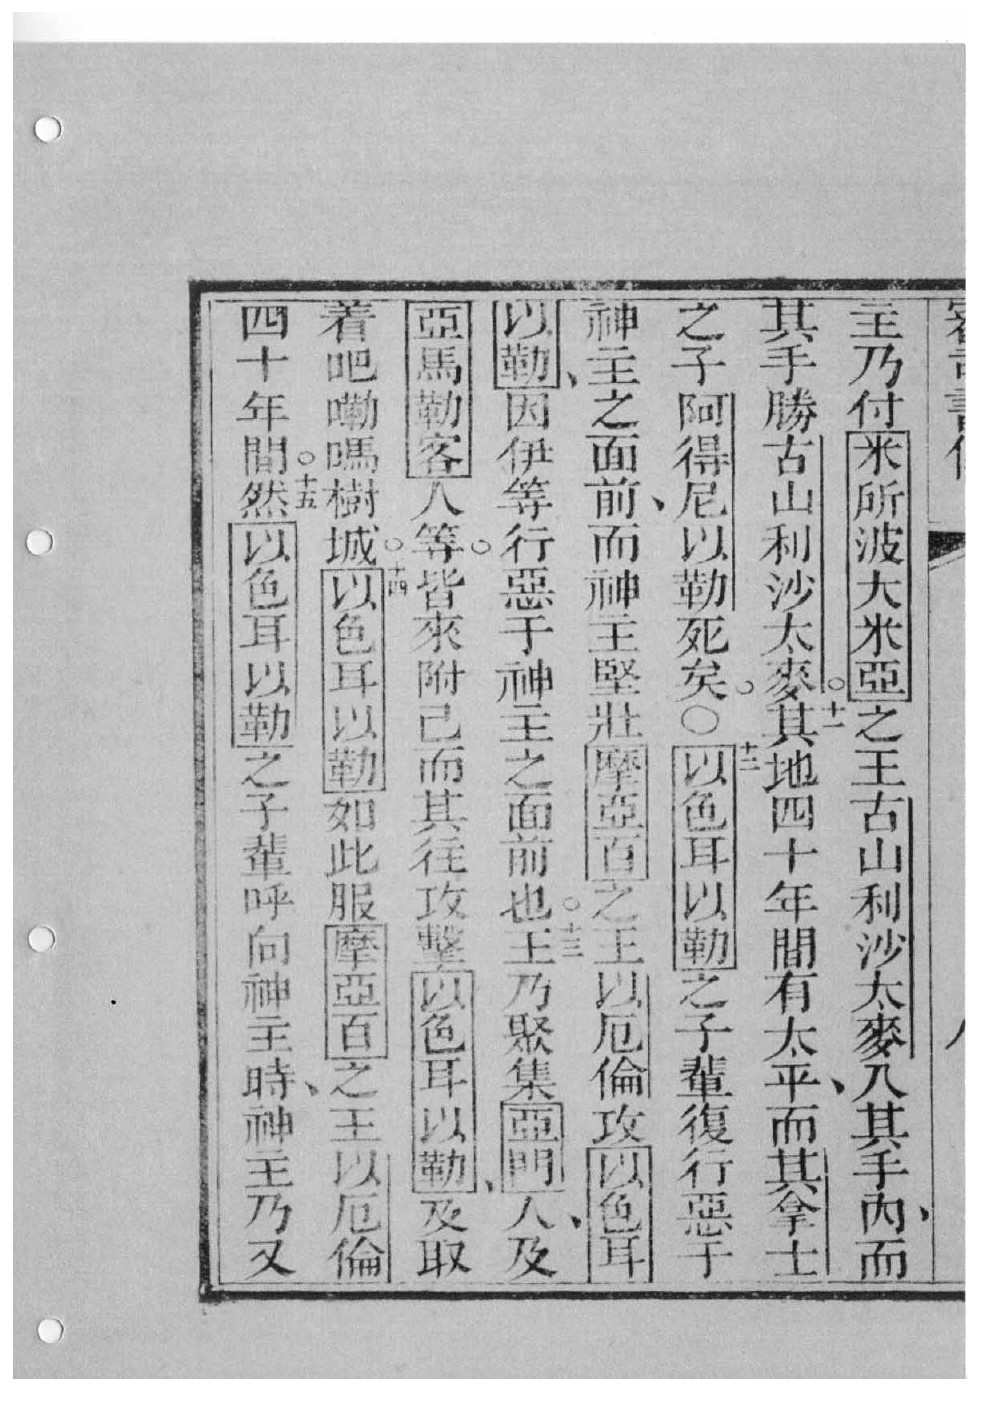 主乃付米所波大米亞之王古山利沙太麥入其手內、而
其手勝古山利沙太麥。○十一其地四十年間有太平、而其拿士
之子阿得尼以勒死矣。○○十二以色耳以勒之子輩復行惡于
神主之面前、而神主堅壯摩亞百之王以厄倫攻以色耳
以勒、因伊等行惡于神主之面前也○十三王乃聚集亞門人、及
亞馬勒客人等○皆來附己而其往攻擊以色耳以勒、及取
着吧嘞嗎樹城○十四以色耳以勒如此服摩亞百之王以厄倫
四十年間○十五然以色耳以勒之子輩呼向神主時、神主乃又